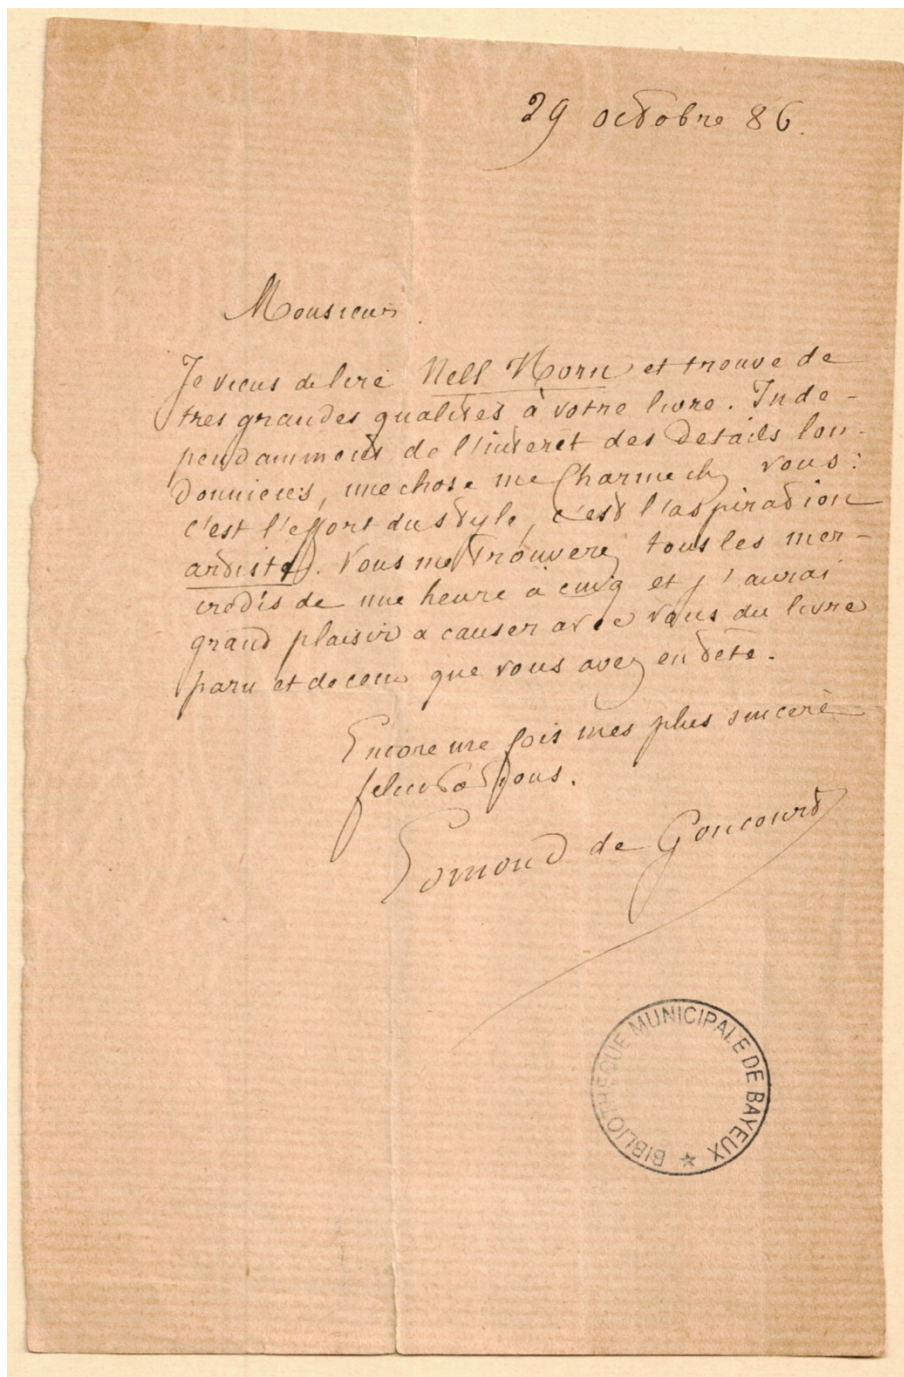 29 octobre 86.
Monsieur
Je viens de lire Nell Horn et trouve de
tres grandes qualités à votre livre. Inde-
pendamment de l'interêt des details lon-
donniens, une chose me charme chez vous:
c'est l'effort du style, c'est l'aspiration
artiste. Vous me trouverez tous les mer-
credis de une heure à cinq et j'aurai
grand plaisir a causer avec vous du livre
paru et de ceux que vous avez en tête.
Encore une fois mes plus sincere
felicitations.
Edmond de Goncourt
BIBLIOTHEQUE MUNICIPALE DE BAYEUX